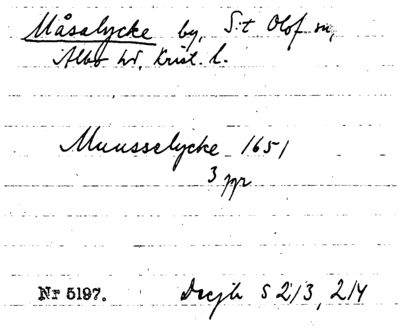 Måsalycke by, S:t Olof sn,
Albo hd, Krist. l.
Muusselycke 1651
3
Nr 5197. s 2/3, 2/4